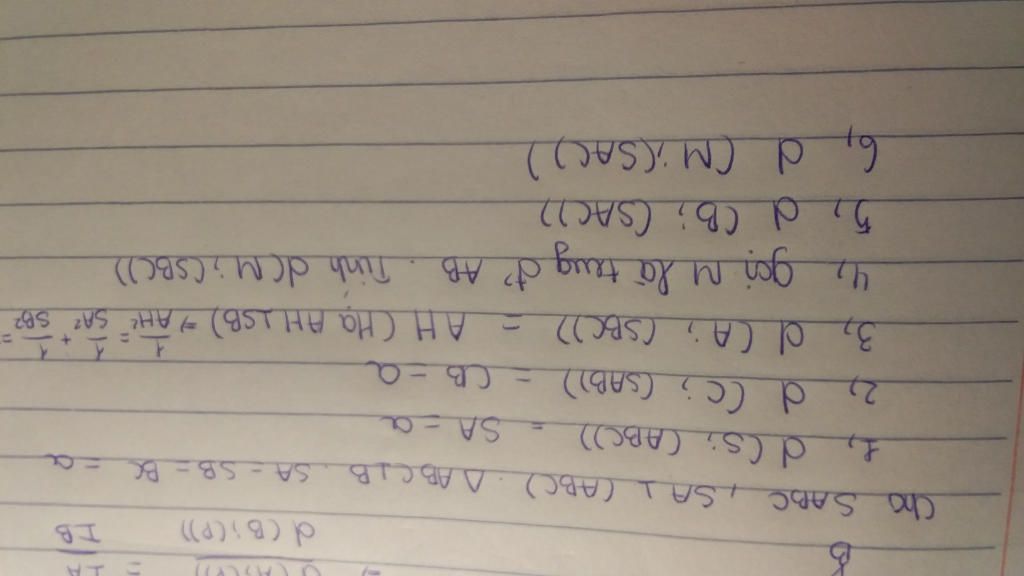 ⇒ d(A;(P)) / d(B;(P)) = IA / IB
B
Cho SABC, SA ⊥ (ABC). ΔABC⊥B. SA = SB = BC = a
1, d(S; (ABC)) = SA = a
2, d(C; (SAB)) = CB = a
3, d(A; (SBC)) = AH (Hạ AH⊥SB) ⇒ 1/AH² = 1/SA² + 1/SB² =
4, gọi M là trung đ² AB. Tính d(M; (SBC))
5, d(B; (SAC))
6, d(M; (SAC))